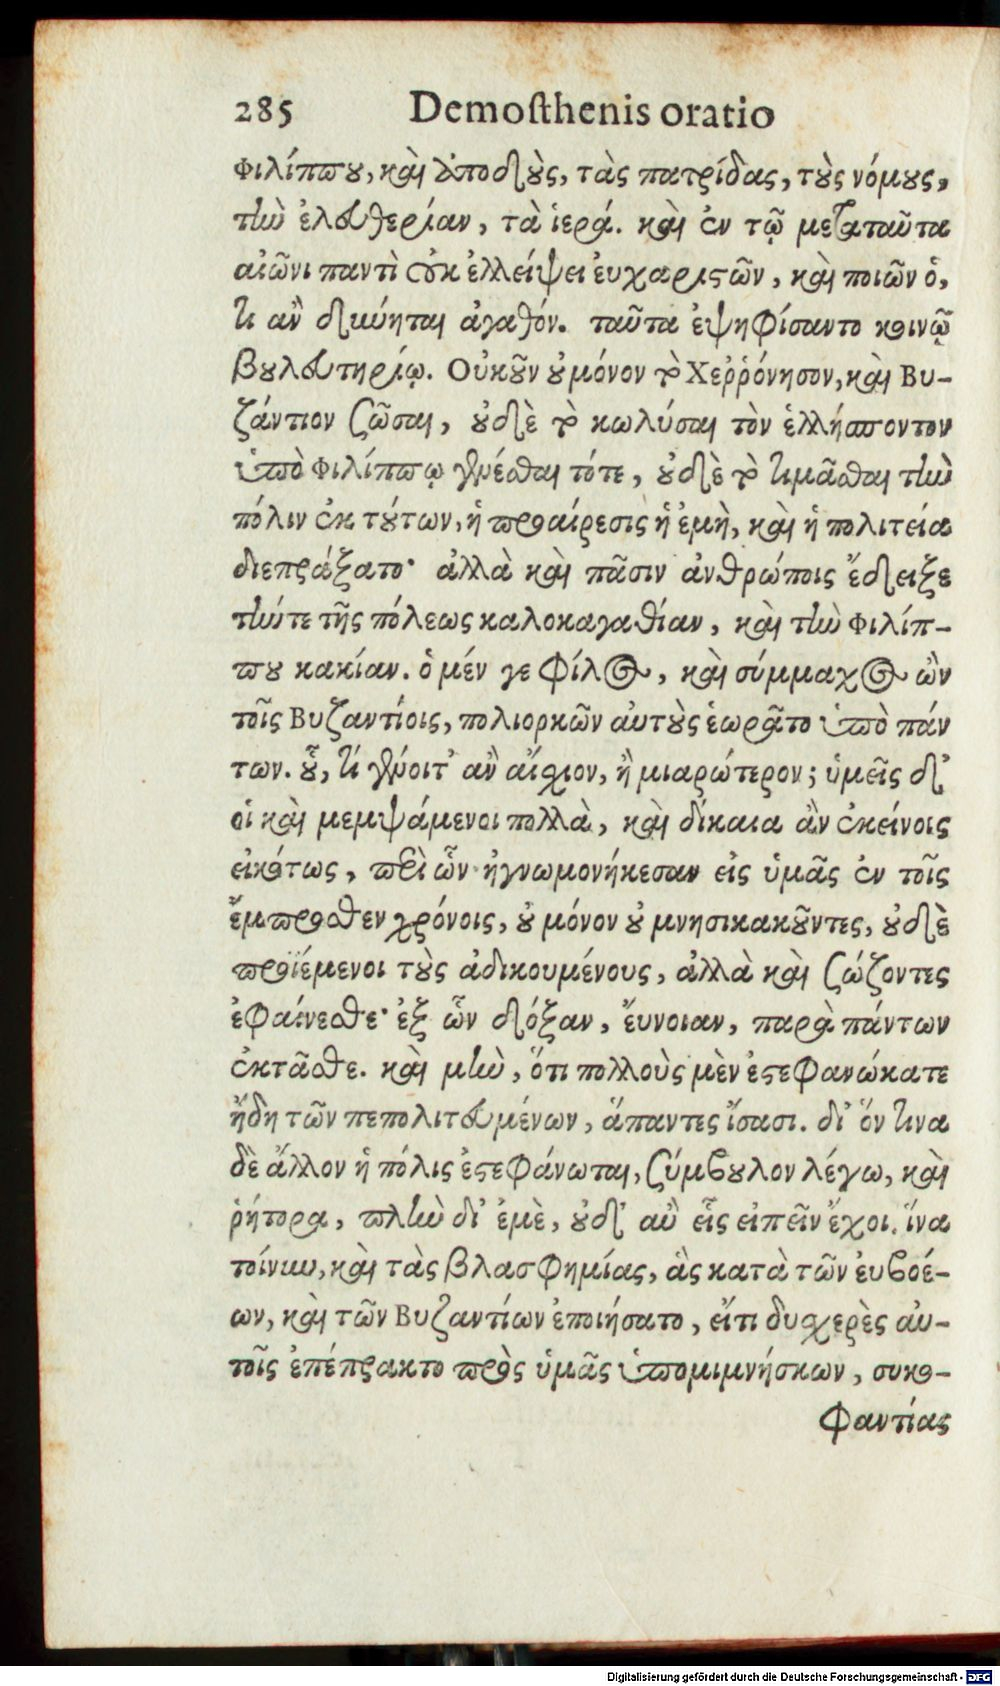 285 Demosthenis oratio
Φιλίππου, καὶ ἀποδοὺς, τὰς πατρίδας, τοὺς νόμους,
τὴν ἐλευθερίαν, τὰ ἱερά. καὶ ἐν τῷ μεταταῦτα
αἰῶνι παντὶ οὐκ ἐλλείψει ἐυχαριστῶν, καὶ ποιῶν ὁ,
τι ἂν δύνηται ἀγαθόν. ταῦτα ἐψηφίσαντο κοινῷ
βουλευτηρίῳ. Οὐκοῦν οὐμόνον τὸ Χεῤῥόνησον, καὶ Βυ-
ζάντιον σῶσαι, οὐδὲ τὸ κωλύσαι τὸν ἑλλήσποντον
ὑπὸ Φιλίππῳ γενέσθαι τότε, οὐδὲ τὸ τιμᾶσθαι τὴν
πόλιν ἐκ τούτων, ἡ προαίρεσις ἡ ἐμὴ, καὶ ἡ πολιτεία
διεπράξατο· ἀλλὰ καὶ πᾶσιν ἀνθρώποις ἔδειξε
τήντε τῆς πόλεως καλοκαγαθίαν, καὶ τὴν Φιλίπ-
που κακίαν. ὁ μέν γε φίλος, καὶ σύμμαχος ὢν
τοῖς Βυζαντίοις, πολιορκῶν αὐτοὺς ἑωρᾶτο ὑπὸ πάν
των. οὗ, τί γένοιτ' ἂν αἴσχιον, ἢ μιαρώτερον; ὑμεῖς δ'
οἱ καὶ μεμψάμενοι πολλὰ, καὶ δίκαια ἂν ἐκείνοις
εἰκότως, περὶ ὧν ἠγνωμονήκεσαν εἰς ὑμᾶς ἐν τοῖς
ἔμπροσθεν χρόνοις, οὐ μόνον οὐ μνησικακοῦντες, οὐδὲ
προϊέμενοι τοὺς ἀδικουμένους, ἀλλὰ καὶ σώζοντες
ἐφαίνεσθε· ἐξ ὧν δόξαν, ἔυνοιαν, παρὰ πάντων
ἐκτᾶσθε. καὶ μὴν, ὅτι πολλοὺς μὲν ἐστεφανώκατε
ἤδη τῶν πεπολιτευμένων, ἅπαντες ἴσασι. δι' ὅν τινα
δὲ ἄλλον ἡ πόλις ἐστεφάνωται, σύμβουλον λέγω, καὶ
ῥήτορα, πλὴν δι' ἐμὲ, οὐδ' ἂν εἷς εἰπεῖν ἔχοι. ἵνα
τοίνυν, καὶ τὰς βλασφημίας, ἃς κατὰ τῶν ἐυβοέ-
ων, καὶ τῶν Βυζαντίων ἐποιήσατο, εἴτι δυσχερὲς αὐ-
τοῖς ἐπέπρακτο πρὸς ὑμᾶς ὑπομιμνήσκων, συκο-
φαντίας
Digitalisierung gefördert durch die Deutsche Forschungsgemeinschaft - DFG